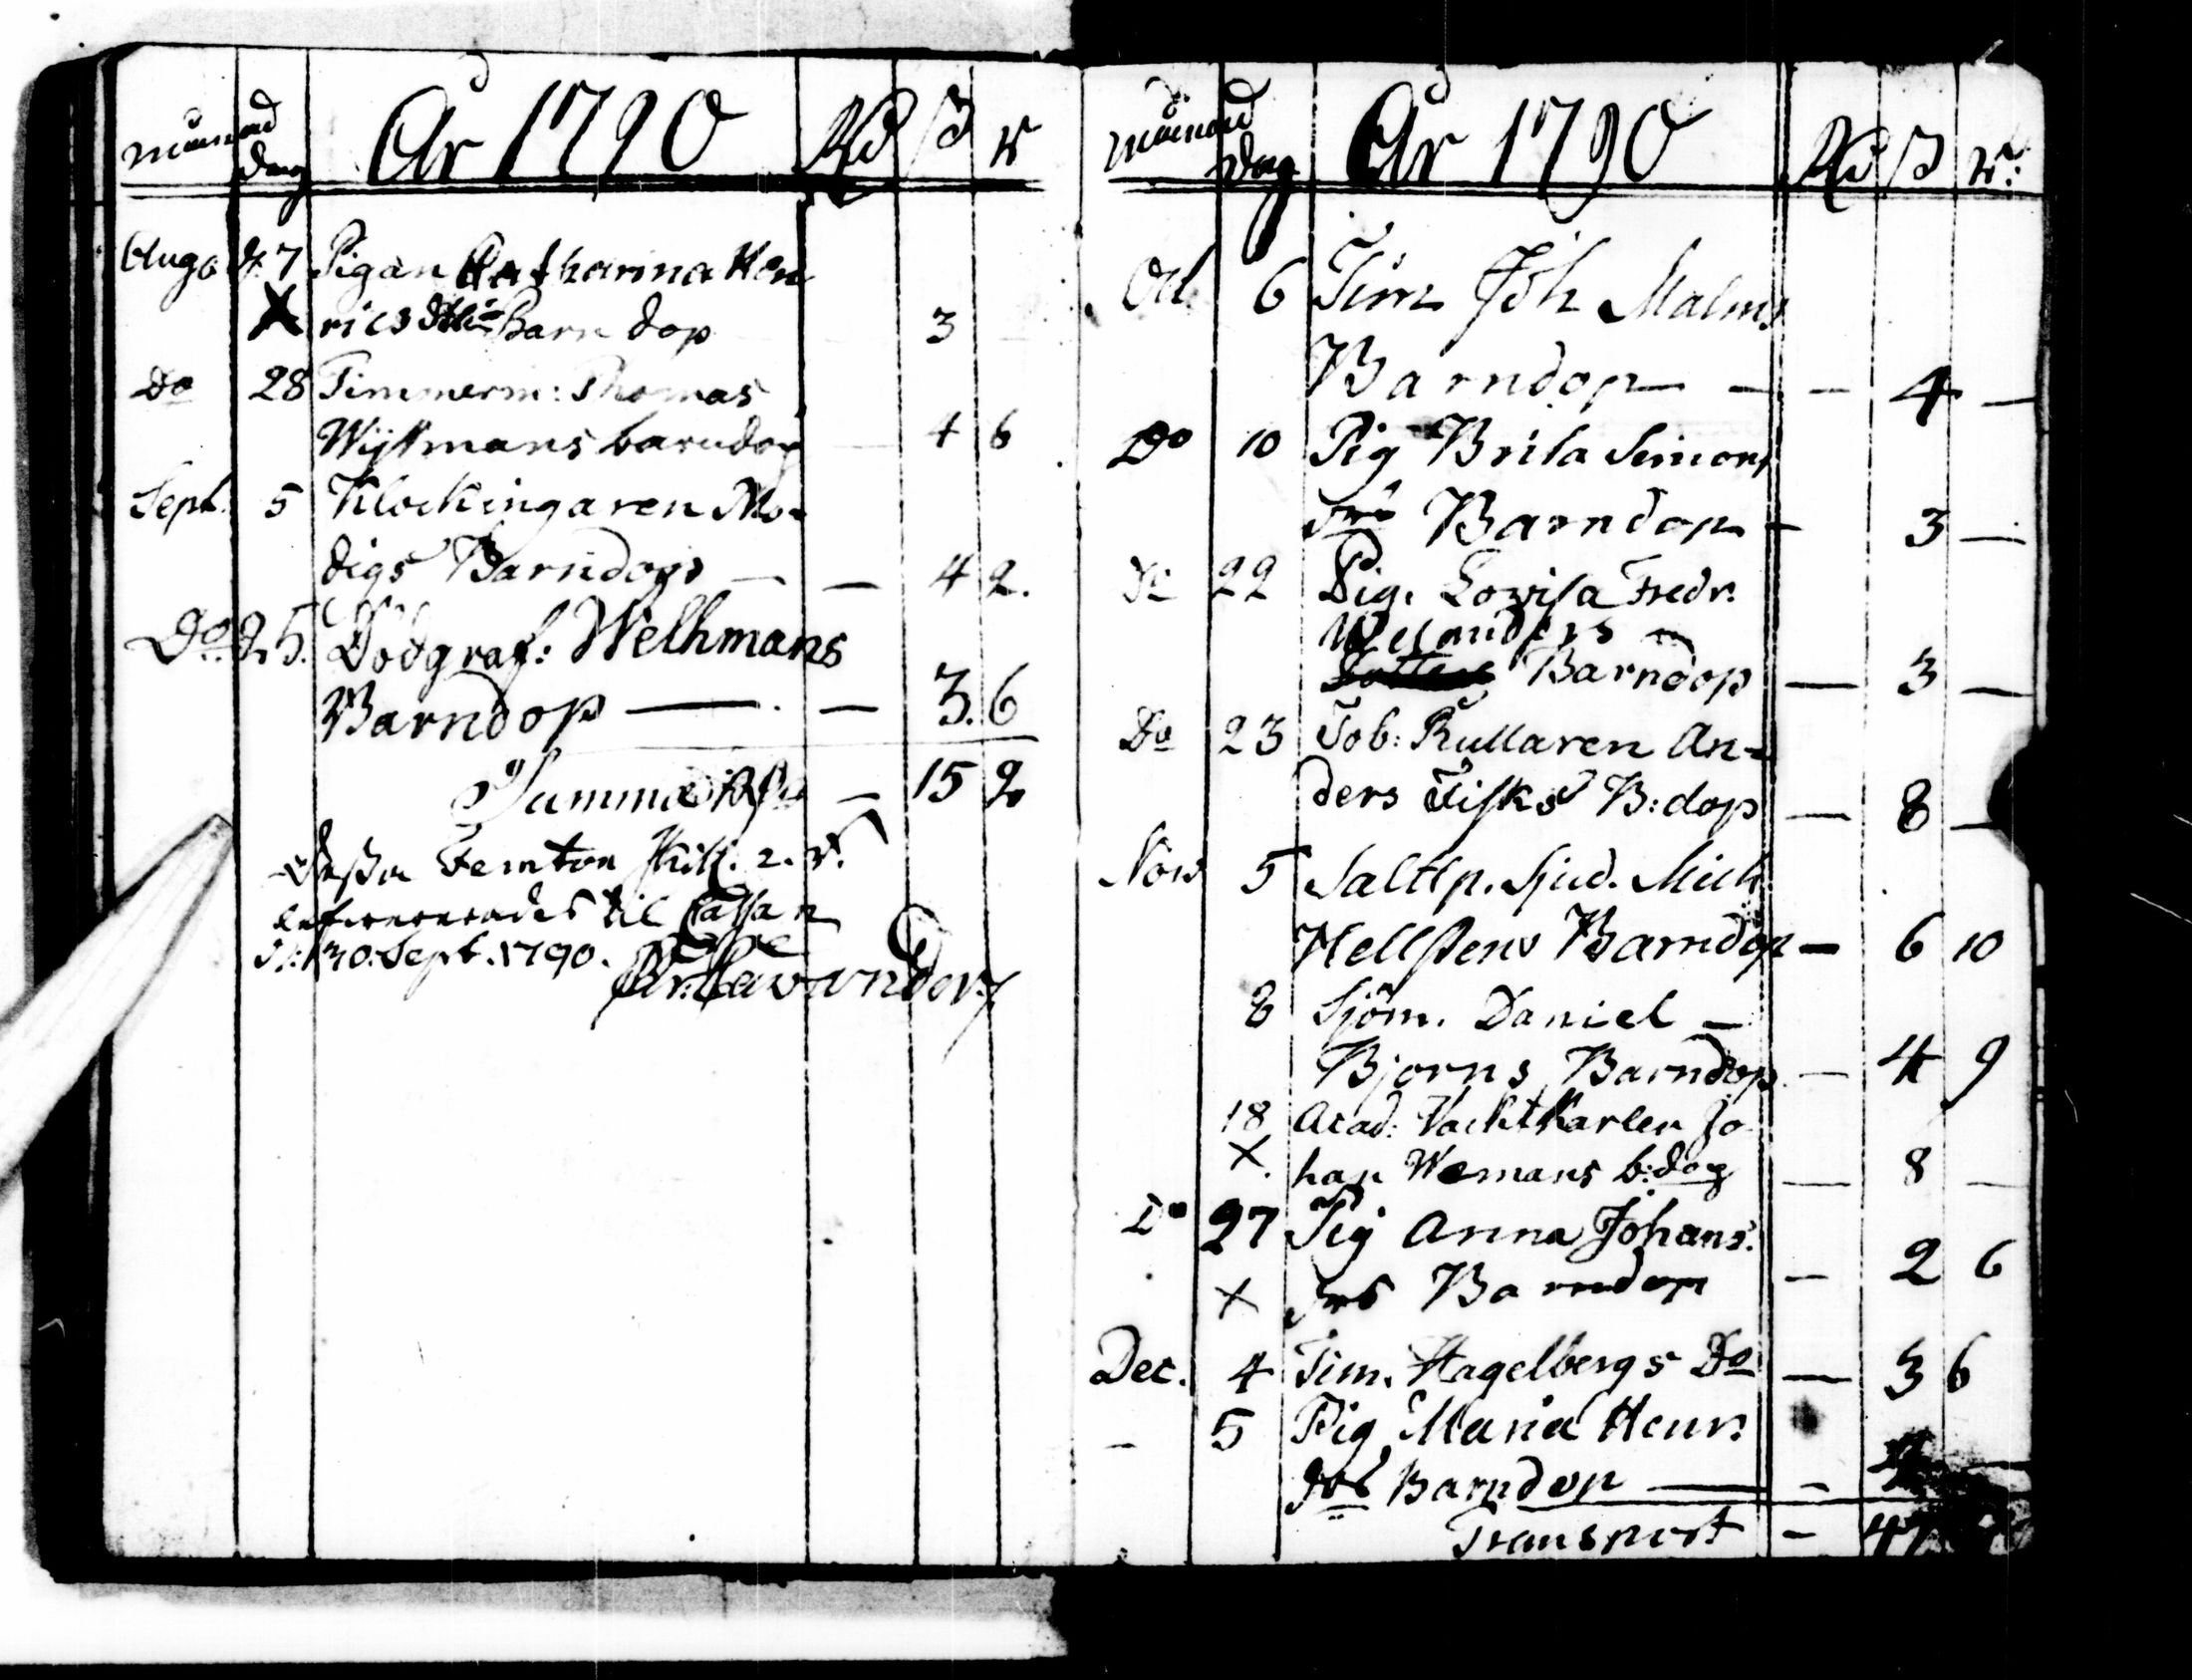 månad dag År 1790 Rd ß rs
Aug d. 7 Pigan Catharina Hen
rics Barn dop 3
Do 28 Timmerm: Thomas
Wijkmans barndop 4 6
Sept. 5 Klockringaren Mo-
digs Barndop — — 4 2.
Do 25. Dödgraf: Welhmans
Barndop — — 3. 6
Summa — 15 2
Dessa Femton skill. 2. r.
lefwererades til Cassan
d: 30. Sept. 1790.
månad dag År 1790 Rd ß rs:
Oct 6 Tim Joh Malms
Barndop — — 4 —
Do 10 Pig Brita Simons
Barndop — 3 —
Do 22 Pig. Lowisa Fredr.
Barndop — 3 —
Do 23 Tob: Rullaren An-
ders Fisks B: dop — 8 —
Nov 5 Saltp. Sjud. Mich.
Hellstens Barndop — 6 10
8 Sjöm. Daniel —
Bjorns Barndop — 4 9
18 Acad: Vachtkarlen Jo
X. han Wemans b: dop — 8 —
Do 27 Pig Anna Johans.
X Barndop — 2 6
Dec. 4 Tim. Hagelbergs Do — 3 6
– 5 Pig Maria Henr.
Barndop — —
Transport – 47